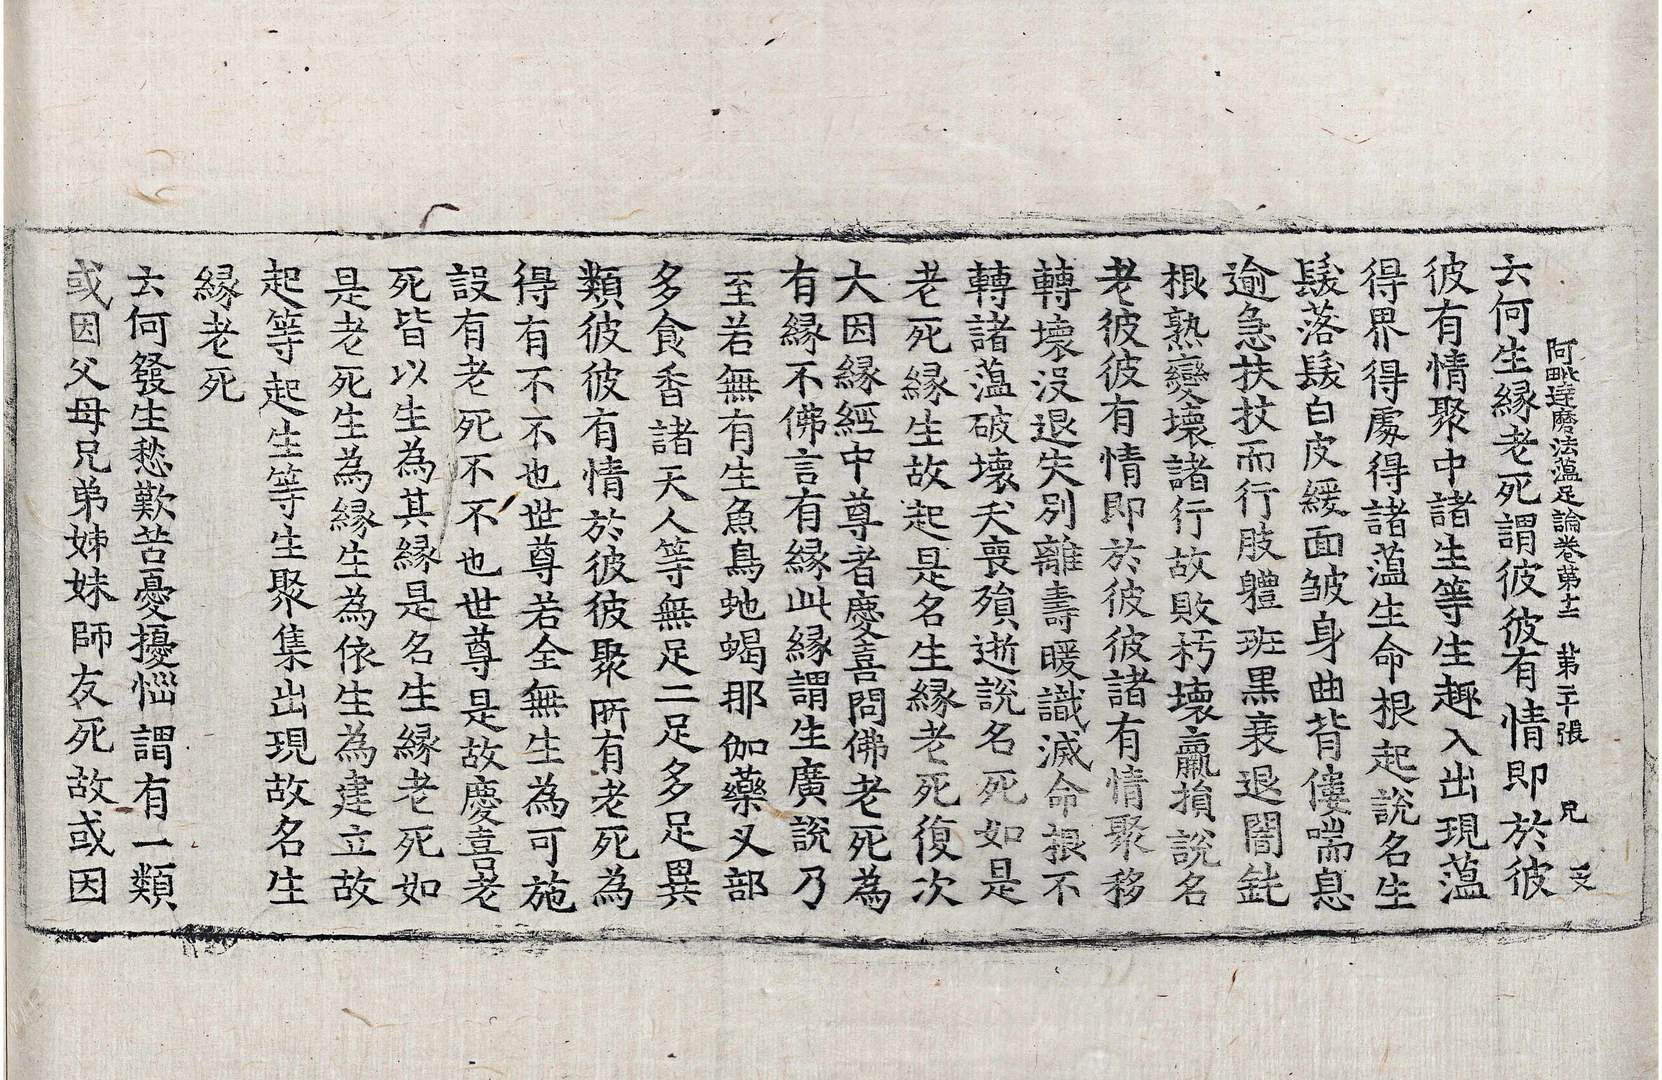 阿毗達磨法蘊足論卷第十二 第二十張 兄
云何生縁老死謂彼彼有情即於彼
彼有情聚中諸生等生趣入出現蘊
得界得處得諸蘊生命根起說名生
髮落髮白皮緩面皱身曲背僂喘息
逾急扶杖而行肢體班黒衰退闇鈍
根熟變壞諸行故敗朽壞羸損說名
老彼彼有情即於彼彼諸有情聚移
轉壞沒退失別離壽暖識滅命根不
轉諸蘊破壞夭喪殞逝說名死如是
老死縁生故起是名生縁老死復次
大因縁經中尊者慶喜問佛老死為
有縁不佛言有縁此縁謂生廣說乃
至若無有生魚鳥虵蝎那伽藥叉部
多食香諸天人等無足二足多足異
類彼彼有情於彼彼聚所有老死為
得有不不也世尊若全無生為可施
設有老死不不也世尊是故慶喜老
死皆以生為其縁是名生縁老死如
是老死生為縁生為依生為建立故
起等起生等生聚集出現故名生
縁老死
云何發生愁歎苦憂擾惱謂有一類
或因父母兄弟姊妹師友死故或因